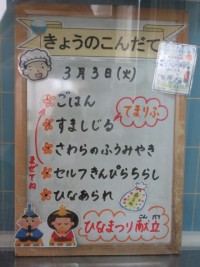 きょうのこんだて
3月3日(火)
ごはん
てまりふ
すましじる
さわらのふうみやき
まぜてね
セルフきんぴらちらし
ひなあられ
ひなまつり献立